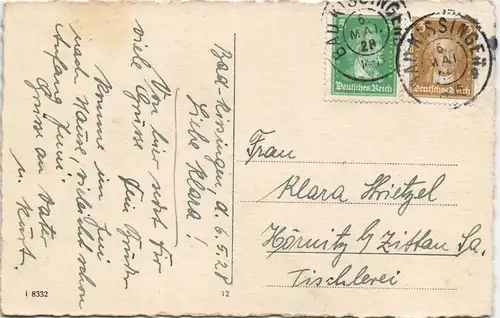 Bad-Kissingen d. 6.5.28
Liebe Klara!
Von hier recht für
viele Grüsse Ein Bruder
komme im Juni
nach Hause, vielleicht schon
Anfang Juni.
Gruss an Vater
u. Kurt.
Frau
Klara Strietzel
Hörnitz b/ Zittau Sa.
Tischlerei
BAD KISSINGEN
6.
MAI.
28
Deutsches Reich
BAD KISSINGEN
6.
MAI.
Deutsches Reich
i 8332
12